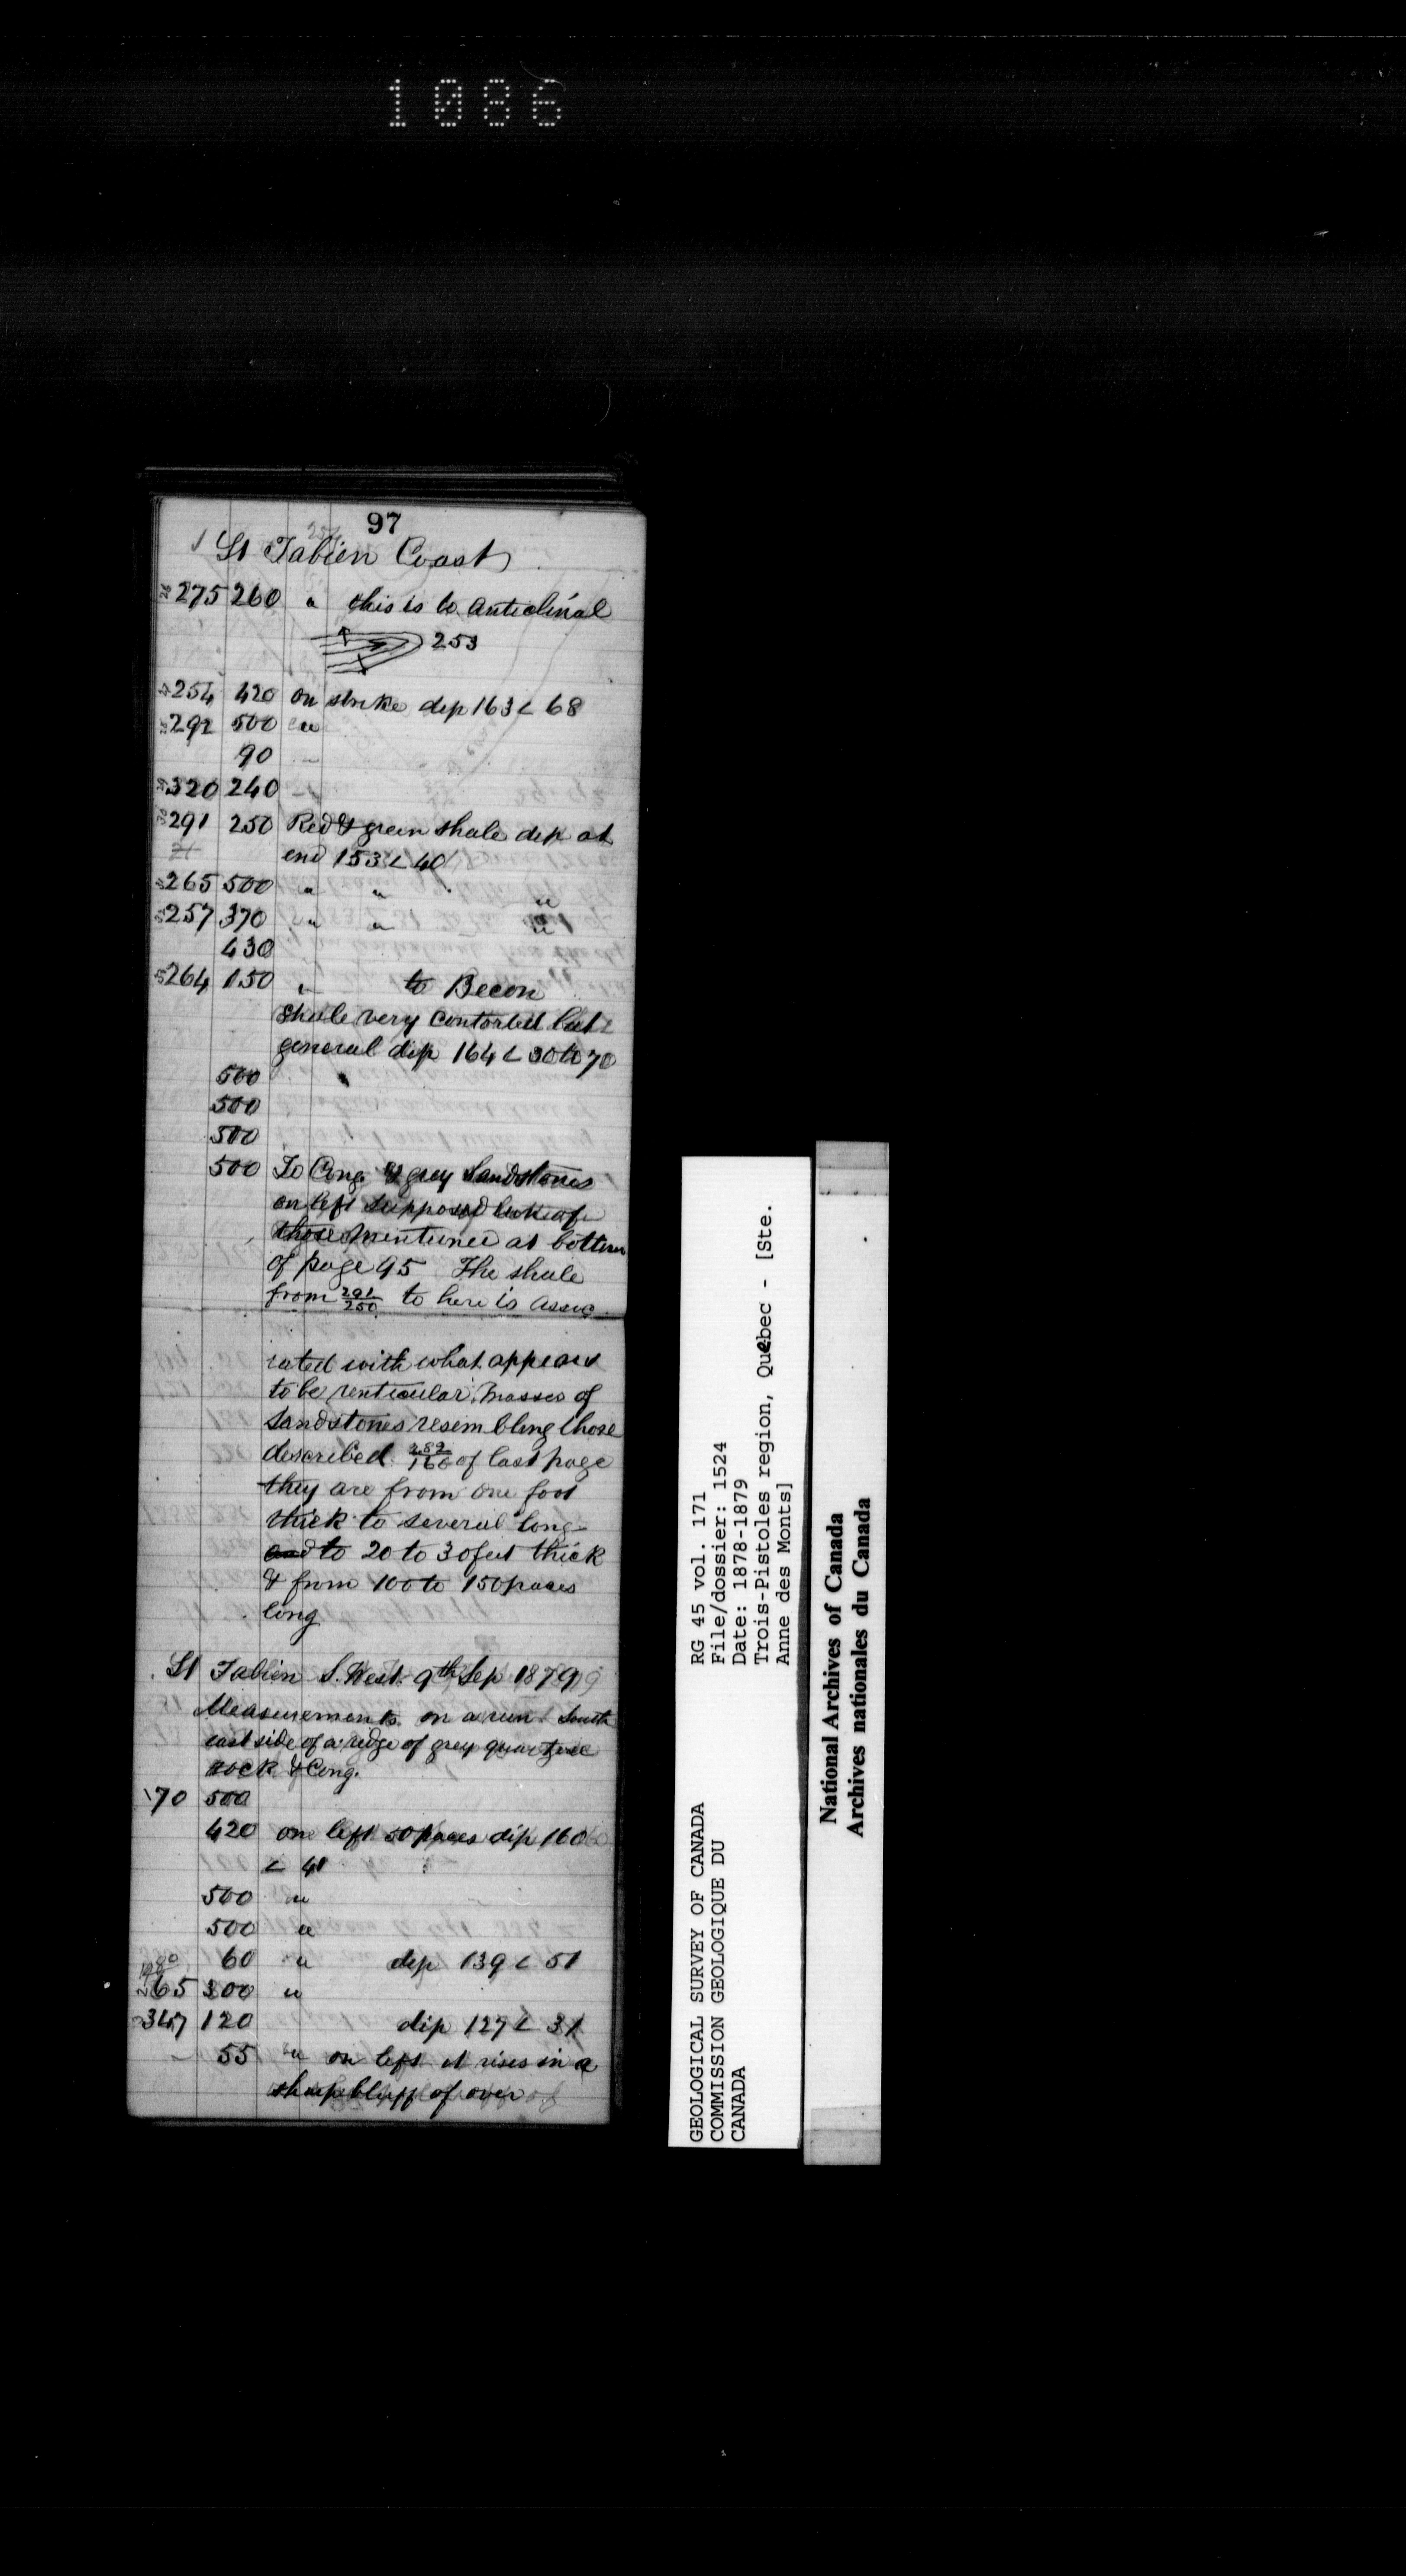 1086
97
St Fabien Coast
275 260 " this is to anticlinal
253
254 420 on strike dip 163 < 68
292 500 "
90
320 240
291 250 Red & green shale dip at
end 153 < 40
265 500 " " "
257 370 " " "
430
264 150 " to Becon
shale very contorted but
general dip 164 < 30 to 70
500
500
500
500 To Cong & grey Sandstones
on left supposed
those mentunee at bottom
of page 95 The shale
from 291/250 to here is assoc
iated with what appears
to be renticular masses of
Sandstones resembling those
described 282/160 of last page
they are from one foot
thick to several long
and to 20 to 30 feet thick
& from 100 to 150 paces
long
St Fabien S. West 9th Sep 1879
Measurements on a run South
east side of a redge of grey quartzose
rock & Cong.
70 500
420 on left 50 paces dip 160
< 41
500 "
500 "
60 " dip 139 < 51
65 300 "
347 120 dip 127 < 31
55 " on left it rises in a
sharp bluff of over
GEOLOGICAL SURVEY OF CANADA
COMMISSION GEOLOGIQUE DU
CANADA
RG 45 vol. 171
File/dossier: 1524
Date: 1878-1879
Trois-Pistoles region, Québec - [Ste.
Anne des Monts]
National Archives of Canada
Archives nationales du Canada